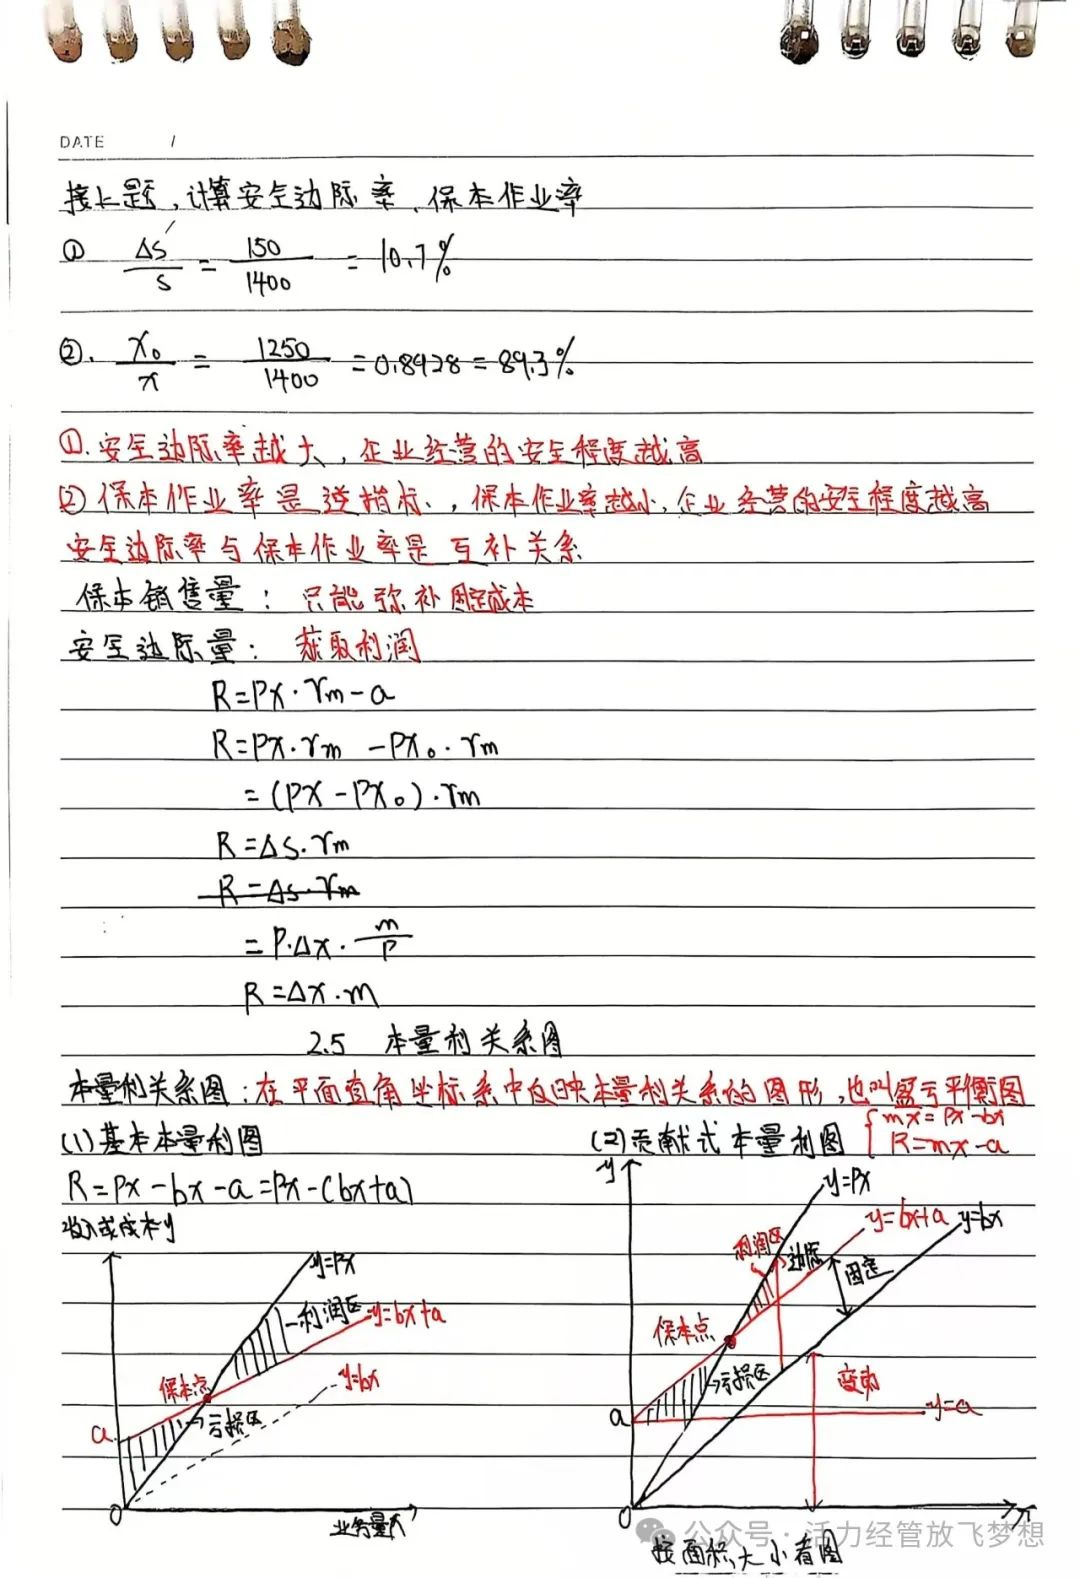 DATE /
接上题，计算安全边际率、保本作业率
① ΔS/S = 150/1400 = 10.7%
②. x₀/x = 1250/1400 = 0.8928 = 89.3%
①. 安全边际率越大，企业经营的安全程度越高
② 保本作业率是逆指标，保本作业率越小，企业经营的安全程度越高
安全边际率与保本作业率是互补关系
保本销售量：只能弥补固定成本
安全边际量：获取利润
R=px·rm-a
R=px·rm -px₀·rm
=(px-px₀)·rm
R=Δs·rm
R=Δs·rm
=P·Δx·m/P
R=Δx·m
2.5 本量利关系图
本量利关系图：在平面直角坐标系中反映本量利关系的图形，也叫盈亏平衡图
(1)基本本量利图
R=px-bx-a=px-(bx+a)
收入或成本y
y=px
利润区
y=bx+a
保本点
y=bx
a
亏损区
0
业务量x
(2)贡献式本量利图
{mx=px-bx
R=mx-a
y
y=px
y=bx+a
y=bx
利润区
边际
固定
保本点
亏损区
变动
a
y=a
0
x
按面积大小看图
公众号·活力经管放飞梦想